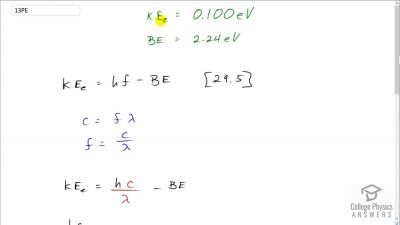 13PE
KEe = 0.100 eV
BE = 2.24 eV
KEe = hf - BE [29.5]
c = f λ
f = c/λ
KEe = hc/λ - BE
hc
College Physics
ANSWERS